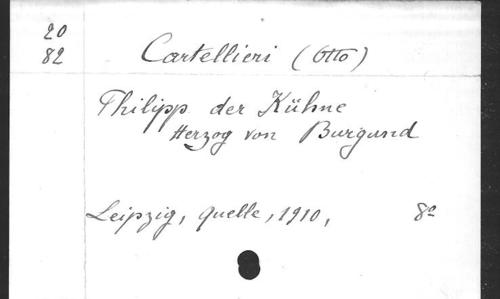 20
82
Cartellieri (Otto)
Philipp der Kühne
Herzog von Burgund
Leipzig, Quelle, 1910, 8º